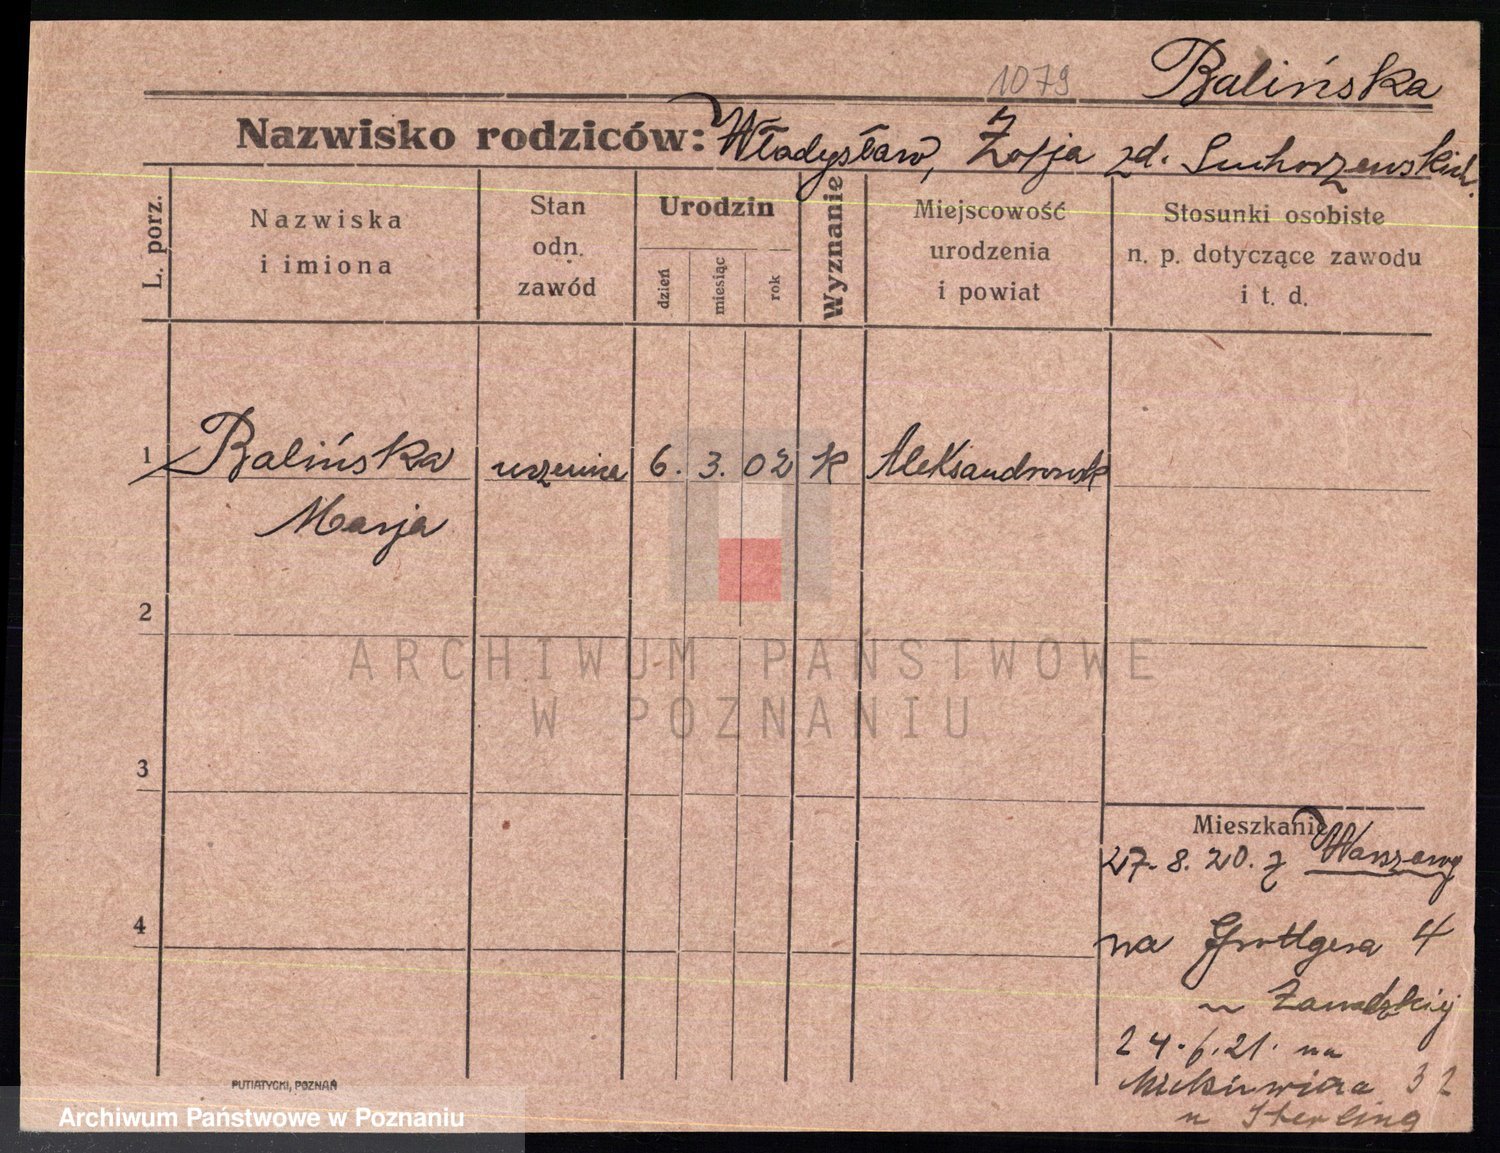 1079 Balińska
Nazwisko rodziców: Władysław, Zofja zd. Suchorzewskich.
L. porz.
Nazwiska
i imiona
Stan
odn.
zawód
Urodzin
dzień
miesiąc
rok
Wyznanie
Miejscowość
urodzenia
i powiat
Stosunki osobiste
n. p. dotyczące zawodu
i t. d.
1 Balińska uczenica 6. 3. 02 K Aleksandrowsk
Marja
2
ARCHIWUM PAŃSTWOWE
W POZNANIU
3
Mieszkanie
27. 8. 20. z Warszawy
4
na Grottgera 4
u Zawadzkiej
24. 6. 21. na
Mickiewicza 32
u Sterling
PUTIATYCKI, POZNAŃ
Archiwum Państwowe w Poznaniu